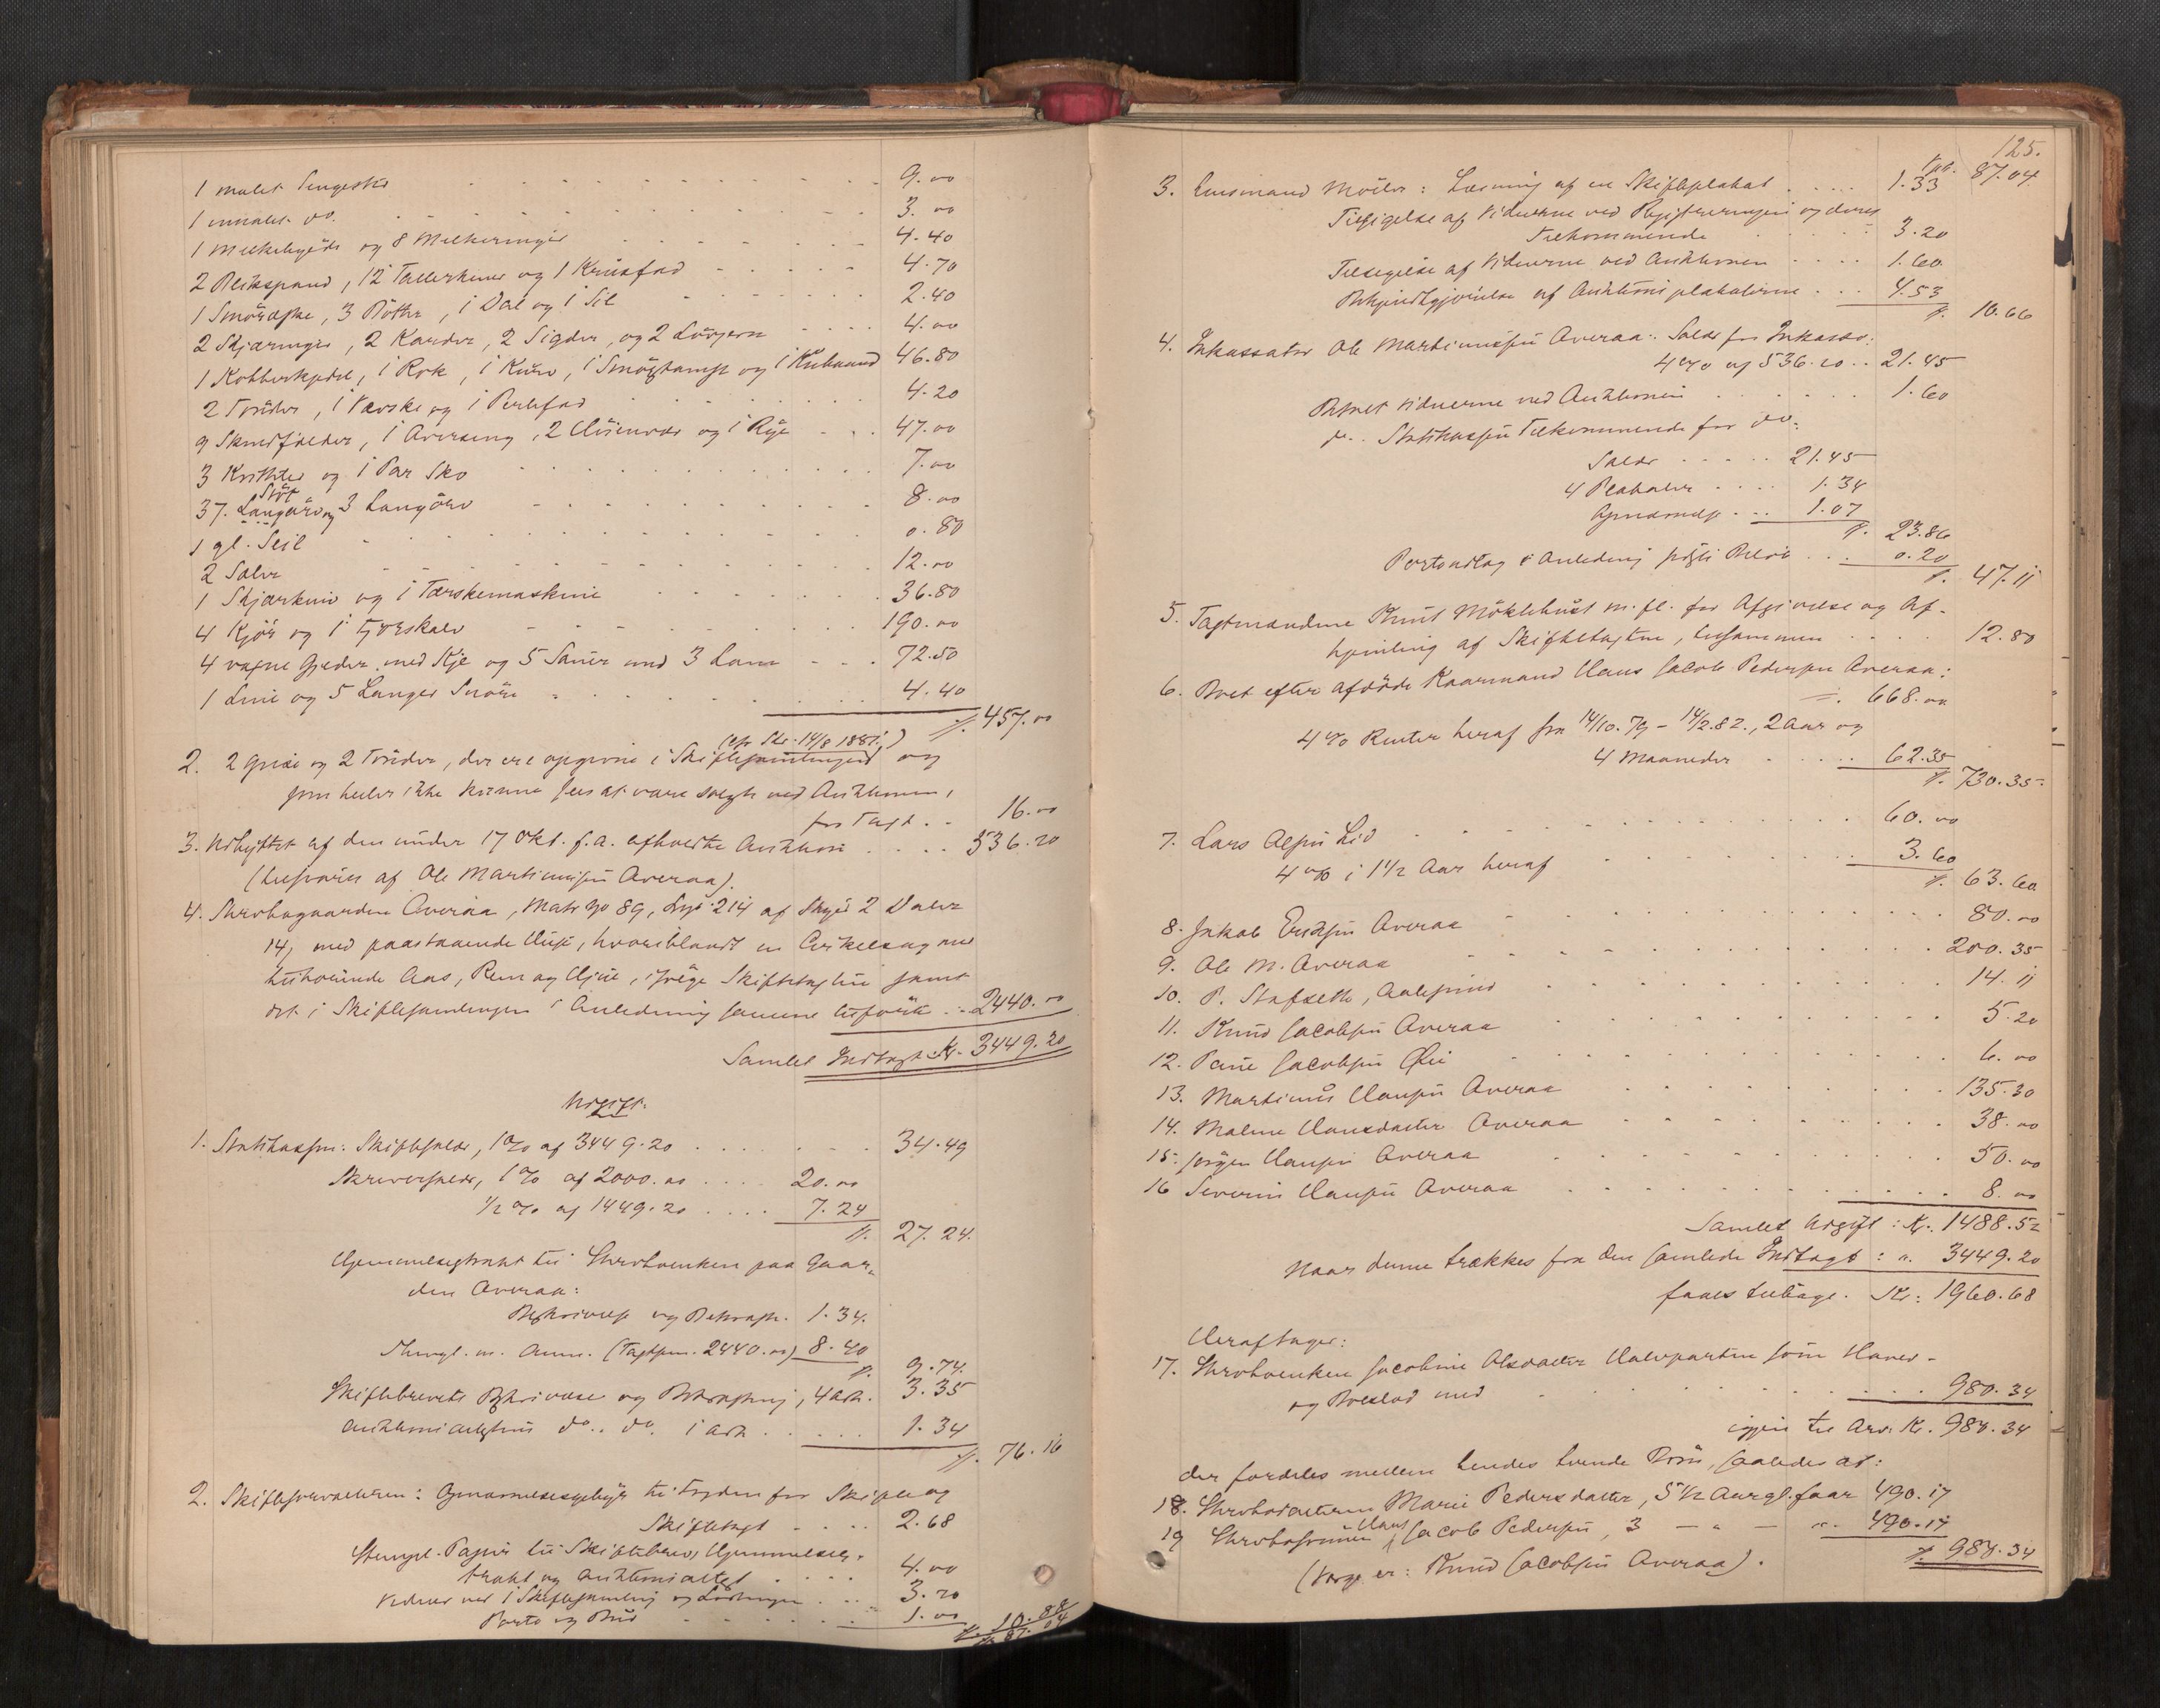 1 malet Sengested . . . 9.00
1 umalet do. . . . 3.00
1 Melkebytte og 8 Melkeringer . . . 4.40
2 Blikspand, 12 Tallerkener og 1 Krusfad . . . 4.70
1 Smöræske, 3 Bötter, 1 Dal og 1 Sil . . . 2.40
2 Skjæringer, 2 Karder, 2 Sigder, og 2 Lövjern . . . 4.00
1 Kobberkjedel, 1 Rok, 1 Kurv, 1 Smörstamp og 1 Kubaand 46.80
2 Tönder, 1 Værske og 1 . . . 4.20
9 Skindfælder, 1 Overseng, 2 og 1 Rye . . . 47.00
3 og 1 Par Sko . . . 7.00
Stöt
37. Langorv og 3 Langorv . . . 8.00
1 gl. Seil . . . 0.80
2 Saler . . . 12.00
1 Skjærkniv og 1 Tærskemaskine . . . 36.80
4 Kjör og 1 Kalv . . . 190.00
4 voxne Gjeder med Kje og 5 Sauer med 3 Lam . . . 72.50
1 Line og 5 Langer Snöre . . . 4.40
457.00
(cfr Skr. 14/8 1881.)
2. 2 Grise og 2 Tönder, der ere opgivne i Skiftesamlingen og
som heller ikke kunne sees at være solgte ved Auktionen,
for Taxt . . 16.00
3. Udbyttet af den under 17 Okt. f.a. afholdte Auktion . . . . 536.20
(tilsvares af Ole Martinussen Overaa).
4. Skrobogaarden Overaa, Matr No 89, Lnr 214 af Skyld 2 Daler
14, med paastaaende Huse, hvoriblandt en Cirkelsag med
tilhörende Aas, Rem og Hjul, ifölge Skiftetaxten samt
det i Skiftesamlingen i Anledning samme tilförte . . 2440.00
Samlet Indtægt Kr. 3449.20
Udgift:
1. Statskassen: Skiftesalær, 1% af 3449.20 . . . 34.49
Skriversalær, 1% af 2000.00 . . . . 20.00
1/2 % af 1449.20 . . . . 7.24
27.24.
Hjemmelsextrakt til Skrboenken paa Gaar-
den Overaa:
Beskrivelse og Bekræft. 1.34.
Thingl. m. Ann. (Taxtsum. 2440.00) 8.40
9.74.
Skiftebrevets Beskrivelse og Bekræftning, 4 Ark. 3.35
Auktionsudskrift do. . do. 1 Ark . . . 1.34
76.16
2. Skifteforvalteren: til Fogden for Skifte og
Skiftetaxt . . . . 2.68
Stempl. Papir til Skiftebrev, Hjemmelsex-
trakt og Auktionsudskrift . . . . 4.00
Vidner ved 1 Skiftesamling og Slutningen . . . 3.20
Porto og Bud . . . 1.00
10.88
87.04
125.
Tpt. 87.04
3. Lensmand Möller: Læsning af en Skifteplakat . . . . 1.33
Tilsigelse af Vidnerne ved Registreringen og deres
Tilkommende . . . 3.20
Tilsigelse af Vidnerne ved Auktionen . . . . 1.60
Bekjendtgjörelse af Auktionsplakaterne . . . 4.53
10.66
4. Inkassator Ole Martinussen Overaa: Salær for Inkasso:
4% af 536.20 . . 21.45
Betalt Vidnerne ved Auktionen . . . 1.60
do. . Statskassens Tilkommende for do.
Salær . . . . 21.45
4 Plakater . . . . 1.34
. . . 1.07
23.86
Portoudlæg i Anledning sidste Belöb . . . 0.20
47.11
5. Taxtmændene Knut Möklebust m. fl. for Afgivelse og Af-
hjemling af Skiftetaxten, tilsammen . . . . 12.80
6. Boet efter afdöde Kaarmand Hans Jacob Pedersen Overaa:
668.00
4% Renter heraf fra 14/10.79 – 14/2.82., 2 Aar og
4 Maaneder . . . . 62.35
730.35.
7. Lars Olsen Lid . . . 60.00
4% i 1 1/2 Aar heraf . . . 3.60
63.60
8. Jakob Eriksen Overaa . . . 80.00
9. Ole M. Overaa . . . 200.35
10. P. Stafseth, Aalesund . . . 14.11
11. Knud Jacobsen Overaa . . . 5.20
12. Jacobsen Öie . . . 6.00
13. Martinus Hansen Overaa . . . 135.30
14. Malene Hansdatter Overaa . . . 38.00
15. Jörgen Hansen Overaa . . . 50.00
16 Severin Hansen Overaa . . . 8.00
Samlet Udgift: Kr. 1488.52
Naar denne trækkes fra den samlede Indtægt: " 3449.20
faaes tilbage. Kr: 1960.68
Heraf tager:
17. Skrboenken Jacobine Olsdatter Halvparten som Hoved-
og Boeslod med . . . 980.34
igjen til Arv. Kr. 980.34
der fordeles mellem hendes tvende Börn, saaledes at:
18. Skrbodatteren Marie Pedersdatter, 5 1/2 Aar gl. faar 490.17
19 Skrbosönnen Hans Jacob Pedersen, 3 — " — " 490.17
980.34
(Værge er: Knud Jacobsen Overaa).